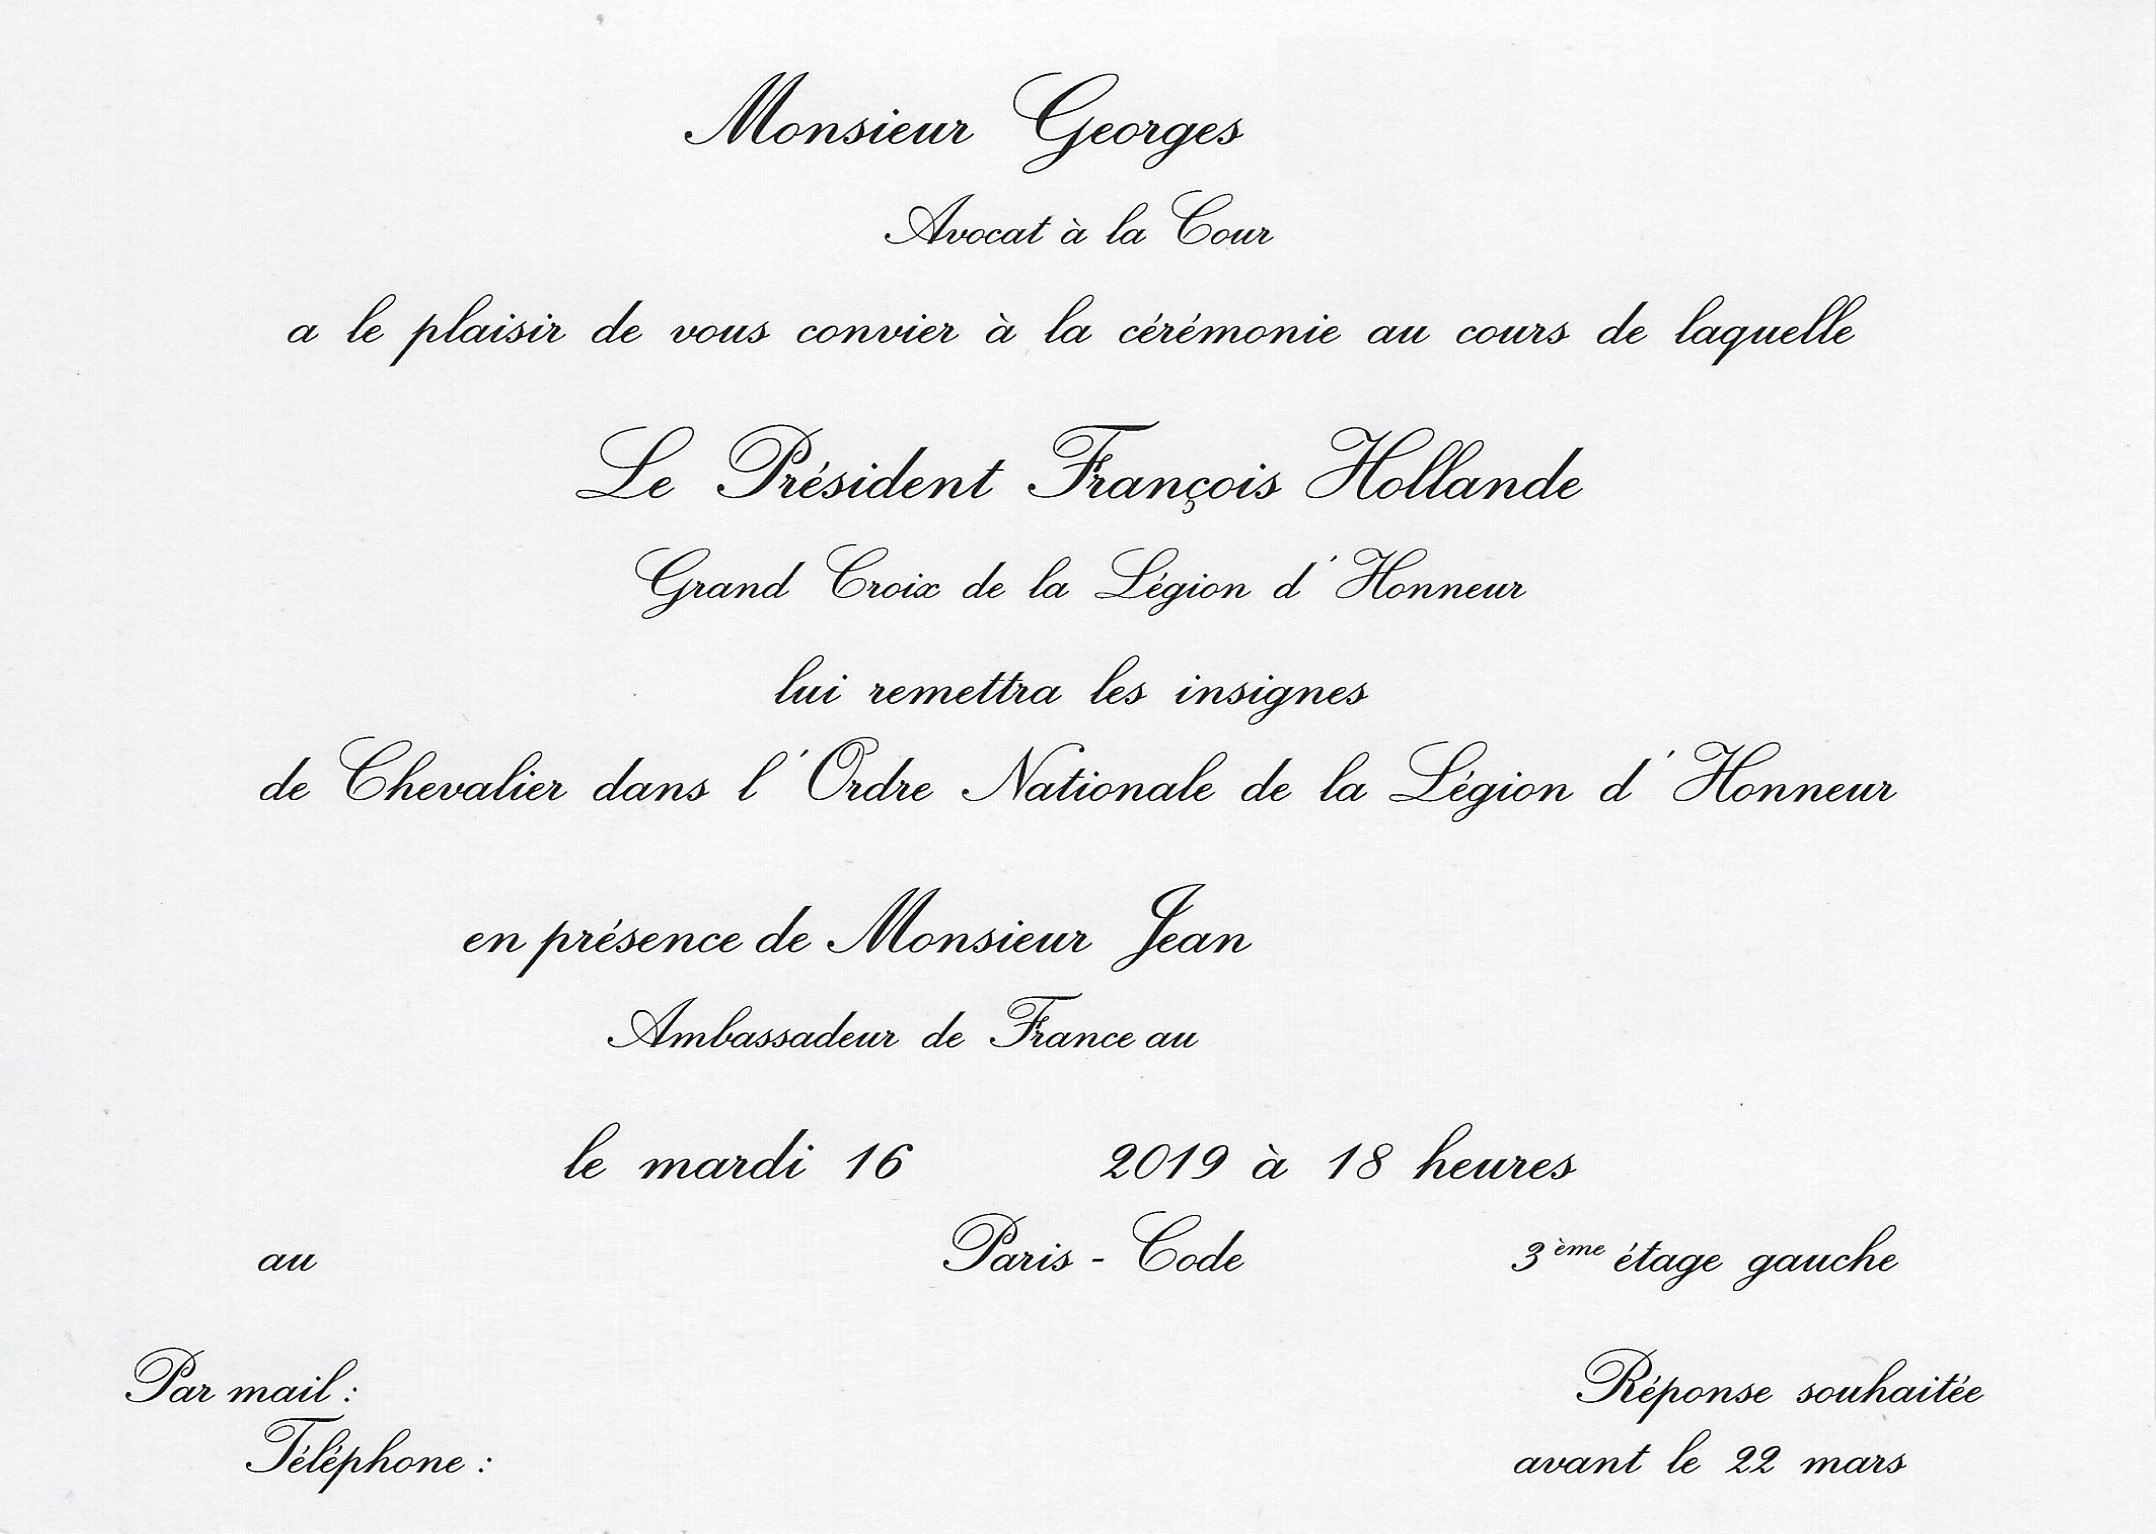 Monsieur Georges
Avocat à la Cour
a le plaisir de vous convier à la cérémonie au cours de laquelle
Le Président François Hollande
Grand Croix de la Légion d'Honneur
lui remettra les insignes
de Chevalier dans l'Ordre Nationale de la Légion d'Honneur
en présence de Monsieur Jean
Ambassadeur de France au
le mardi 16 2019 à 18 heures
au Paris - Code 3ème étage gauche
Par mail : Réponse souhaitée
Téléphone : avant le 22 mars